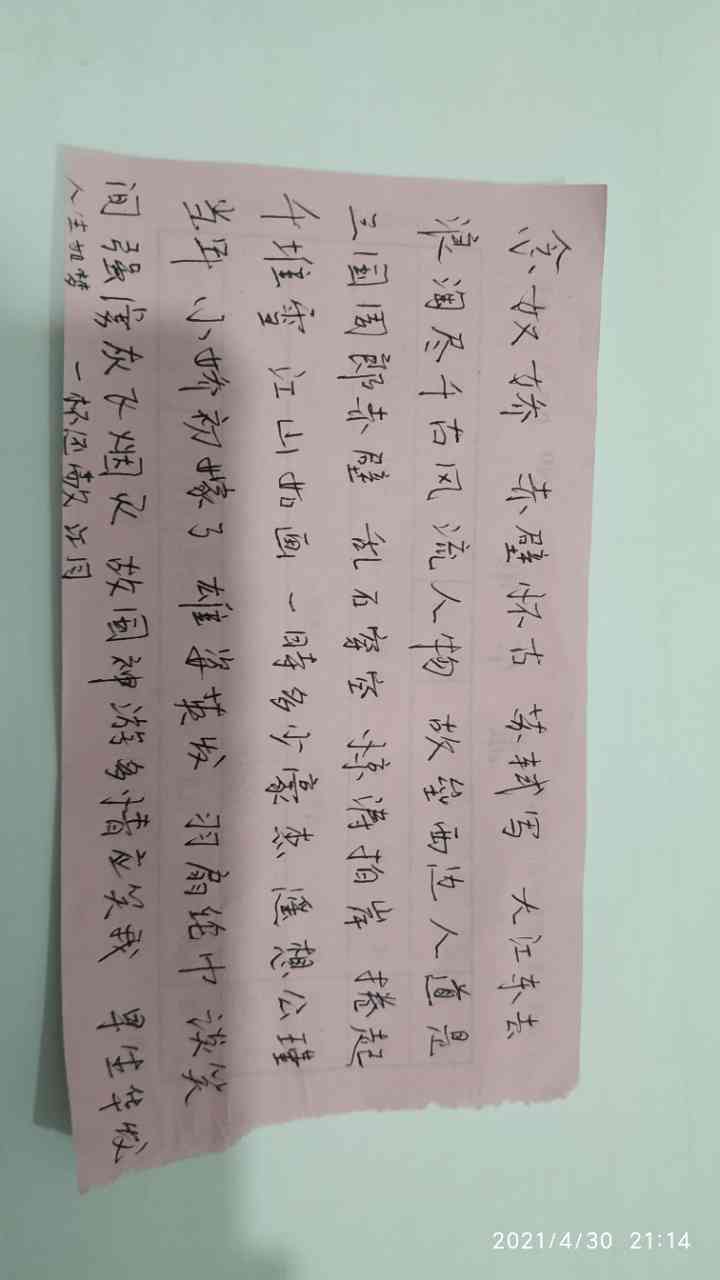 念奴娇 赤壁怀古 苏轼写 大江东去
浪淘尽千古风流人物 故垒西边人道是
三国周郎赤壁 乱石穿空 惊涛拍岸 捲起
千堆雪 江山如画 一時多少豪杰 遥想公瑾
当年 小娇初嫁了 雄姿英发 羽扇纶巾 谈笑
间 强虏灰飞烟灭 故国神游多情应笑我 早生华发
人生如梦 一杯还敬江月
2021/4/30 21:14